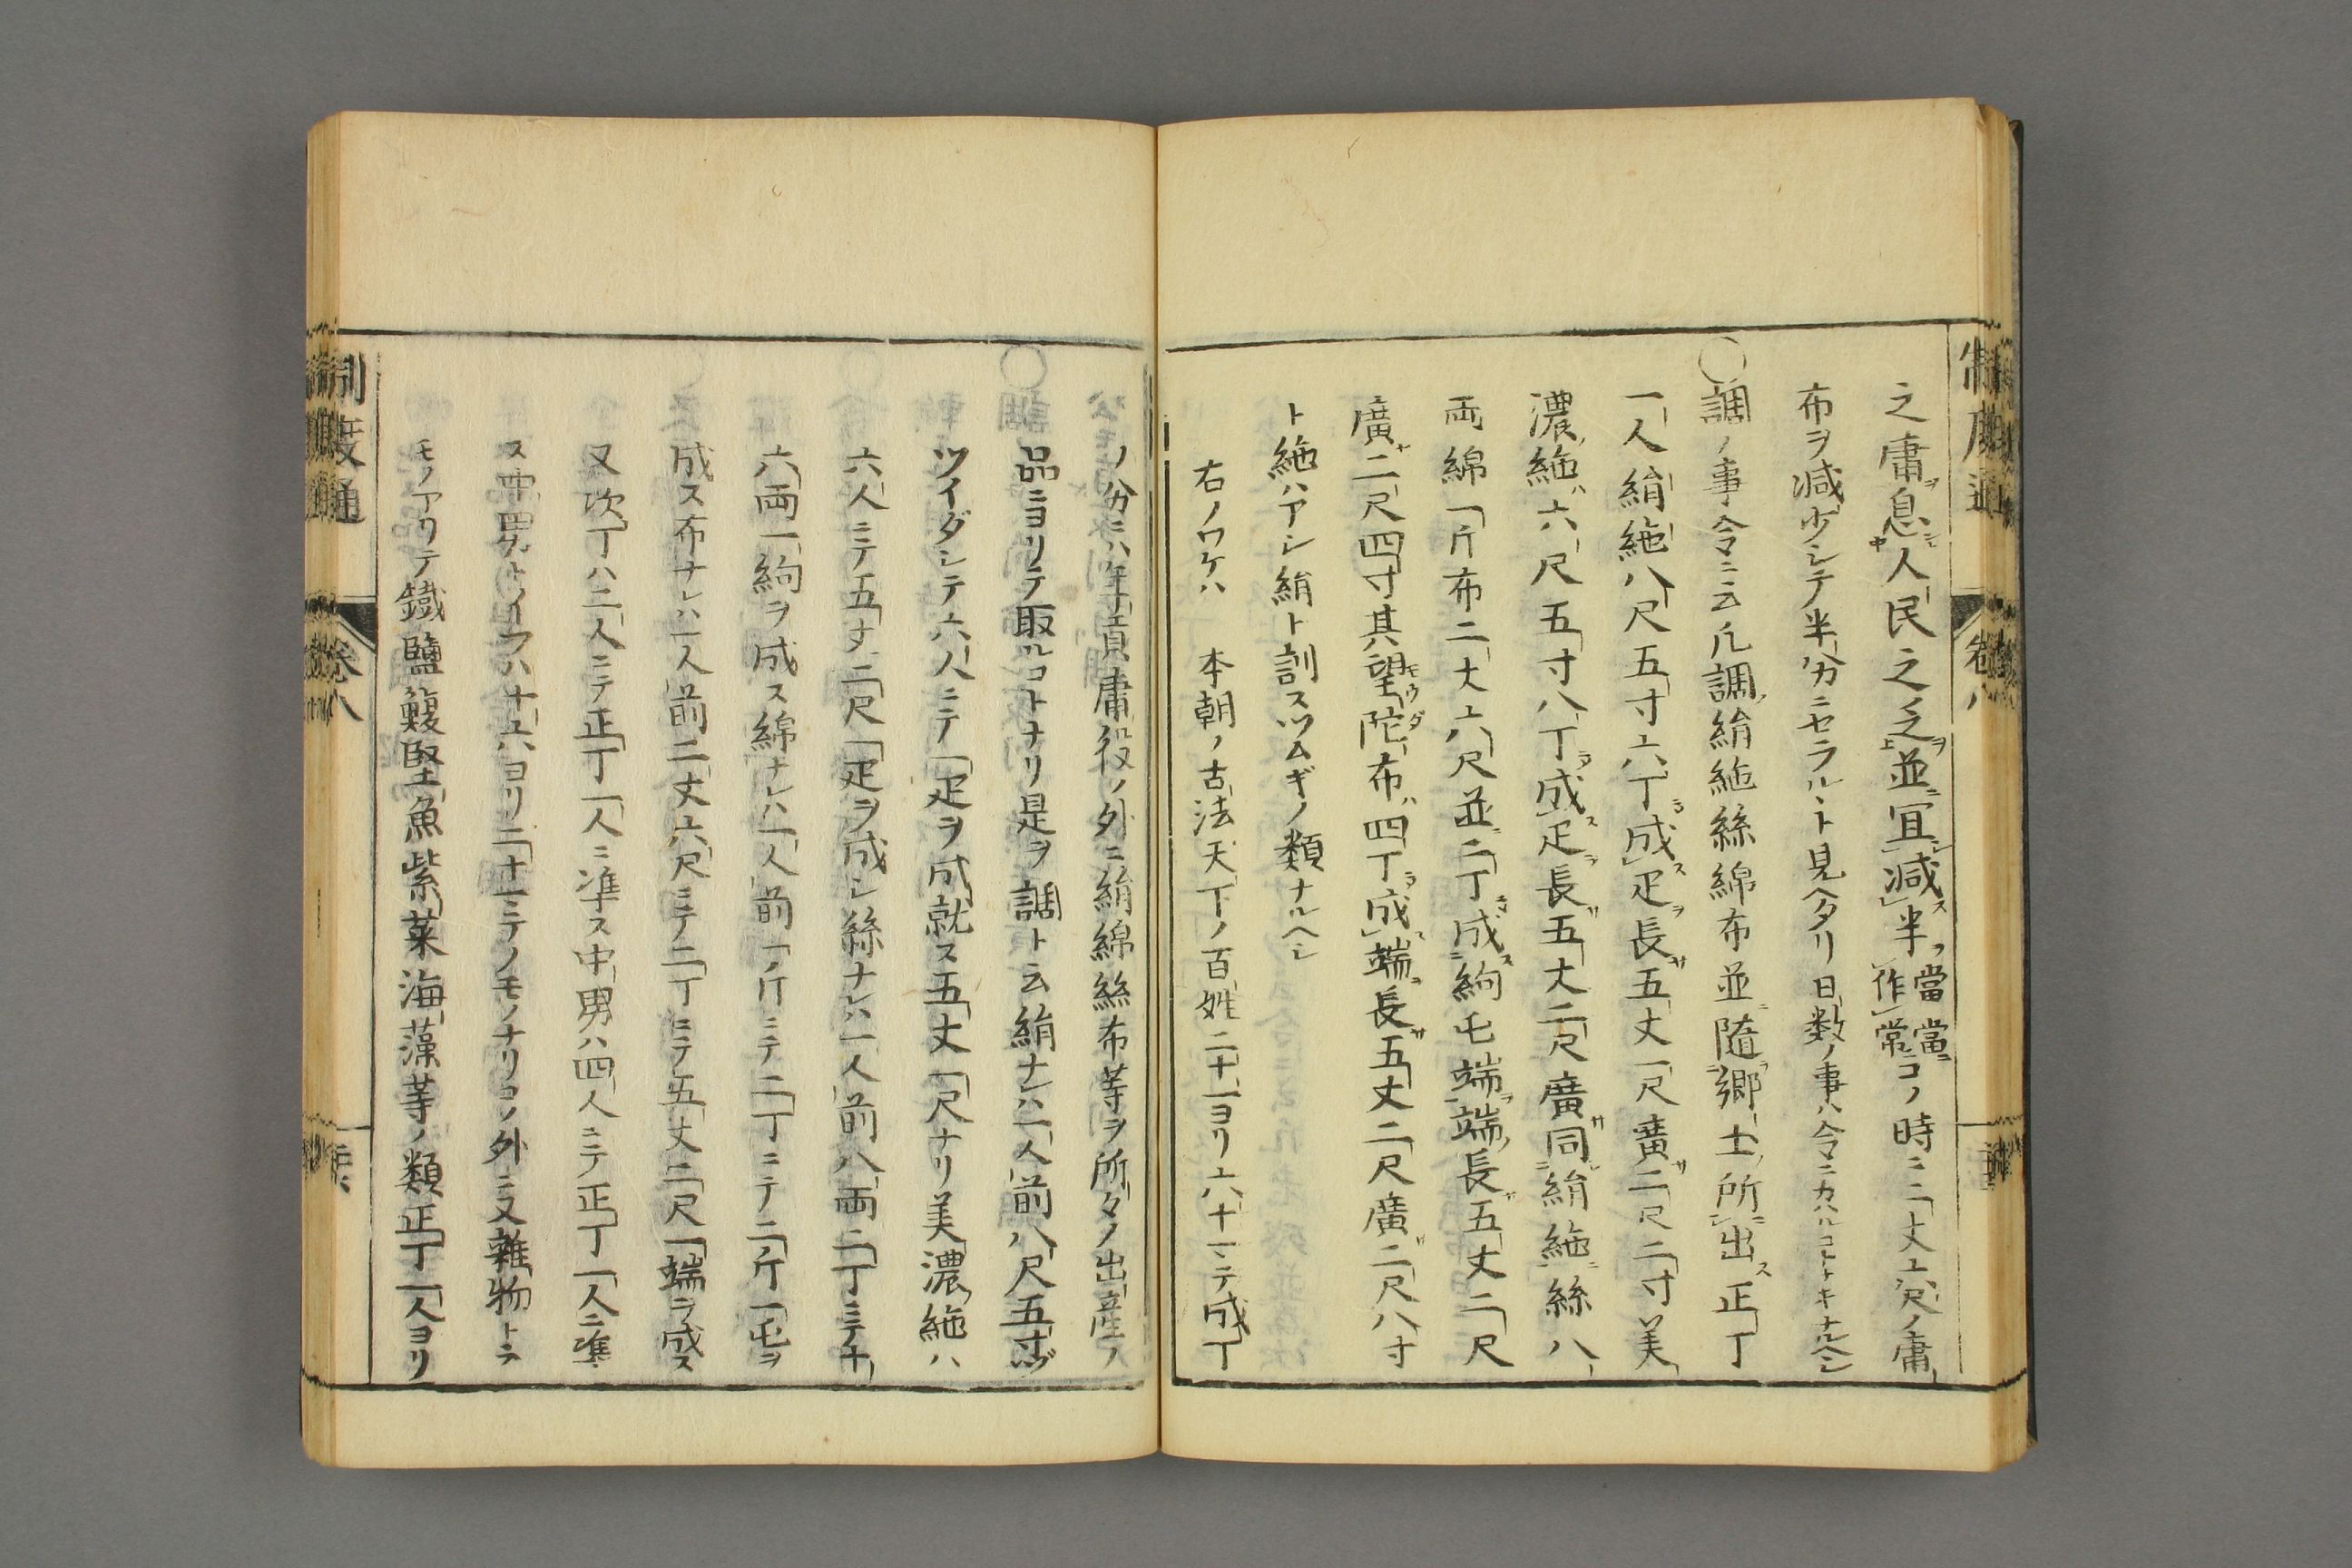 制度通 卷八
之庸息人民之乏並宜減半當作常當コノ時ニ二丈六尺ノ庸
布ヲ減少シテ半分ニセラルヽト見ヘタリ日数ノ事ハ令ニカハルコトナキナルヘシ
〇調ノ事令ニ云凡調絹絁絲綿布並隨郷土所出正丁
一人絹絁八尺五寸六丁成疋長五丈一尺廣二尺二寸美
濃絁六尺五寸八丁成疋長五丈二尺廣同絹絁絲八
両綿一斤布二丈六尺並二丁成絇屯端端長五丈二尺
廣二尺四寸其望陀布四丁成端長五丈二尺廣二尺八寸
ト絁ハアシ絹ト訓スツムギノ類ナルヘシ
右ノワケハ 本朝ノ古法天下ノ百姓二十一ヨリ六十一ニテ成丁
ノ分ニハ年貢庸役ノ外ニ絹綿絲布等ヲ所々ノ出産ノ
品ニヨリテ取ルコトナリ是ヲ調ト云絹ナレハ一人前八尺五寸ヅ
ツイダシテ六人ニテ一疋ヲ成就ス五丈一尺ナリ美濃絁ハ
六人ニテ五丈二尺一疋ヲ成シ絲ナレハ一人前八両二丁ニテ十
六両一絇ヲ成ス綿ナレハ一人前一斤ニテ二丁ニテ二斤一屯ヲ
成ス布ナレハ一人前二丈六尺ニテ二丁ニテ五丈二尺一端ヲ成ス
又次丁ハ二人ニテ正丁一人ニ準ス中男ハ四人ニテ正丁一人ニ準
ス中男トイフハ十六ヨリ二十ニテノモノナリコノ外ニ又雜物トテ
モノアリテ鐵鹽鰒堅魚紫菜海藻等ノ類正丁一人ヨリ
制度通 卷八